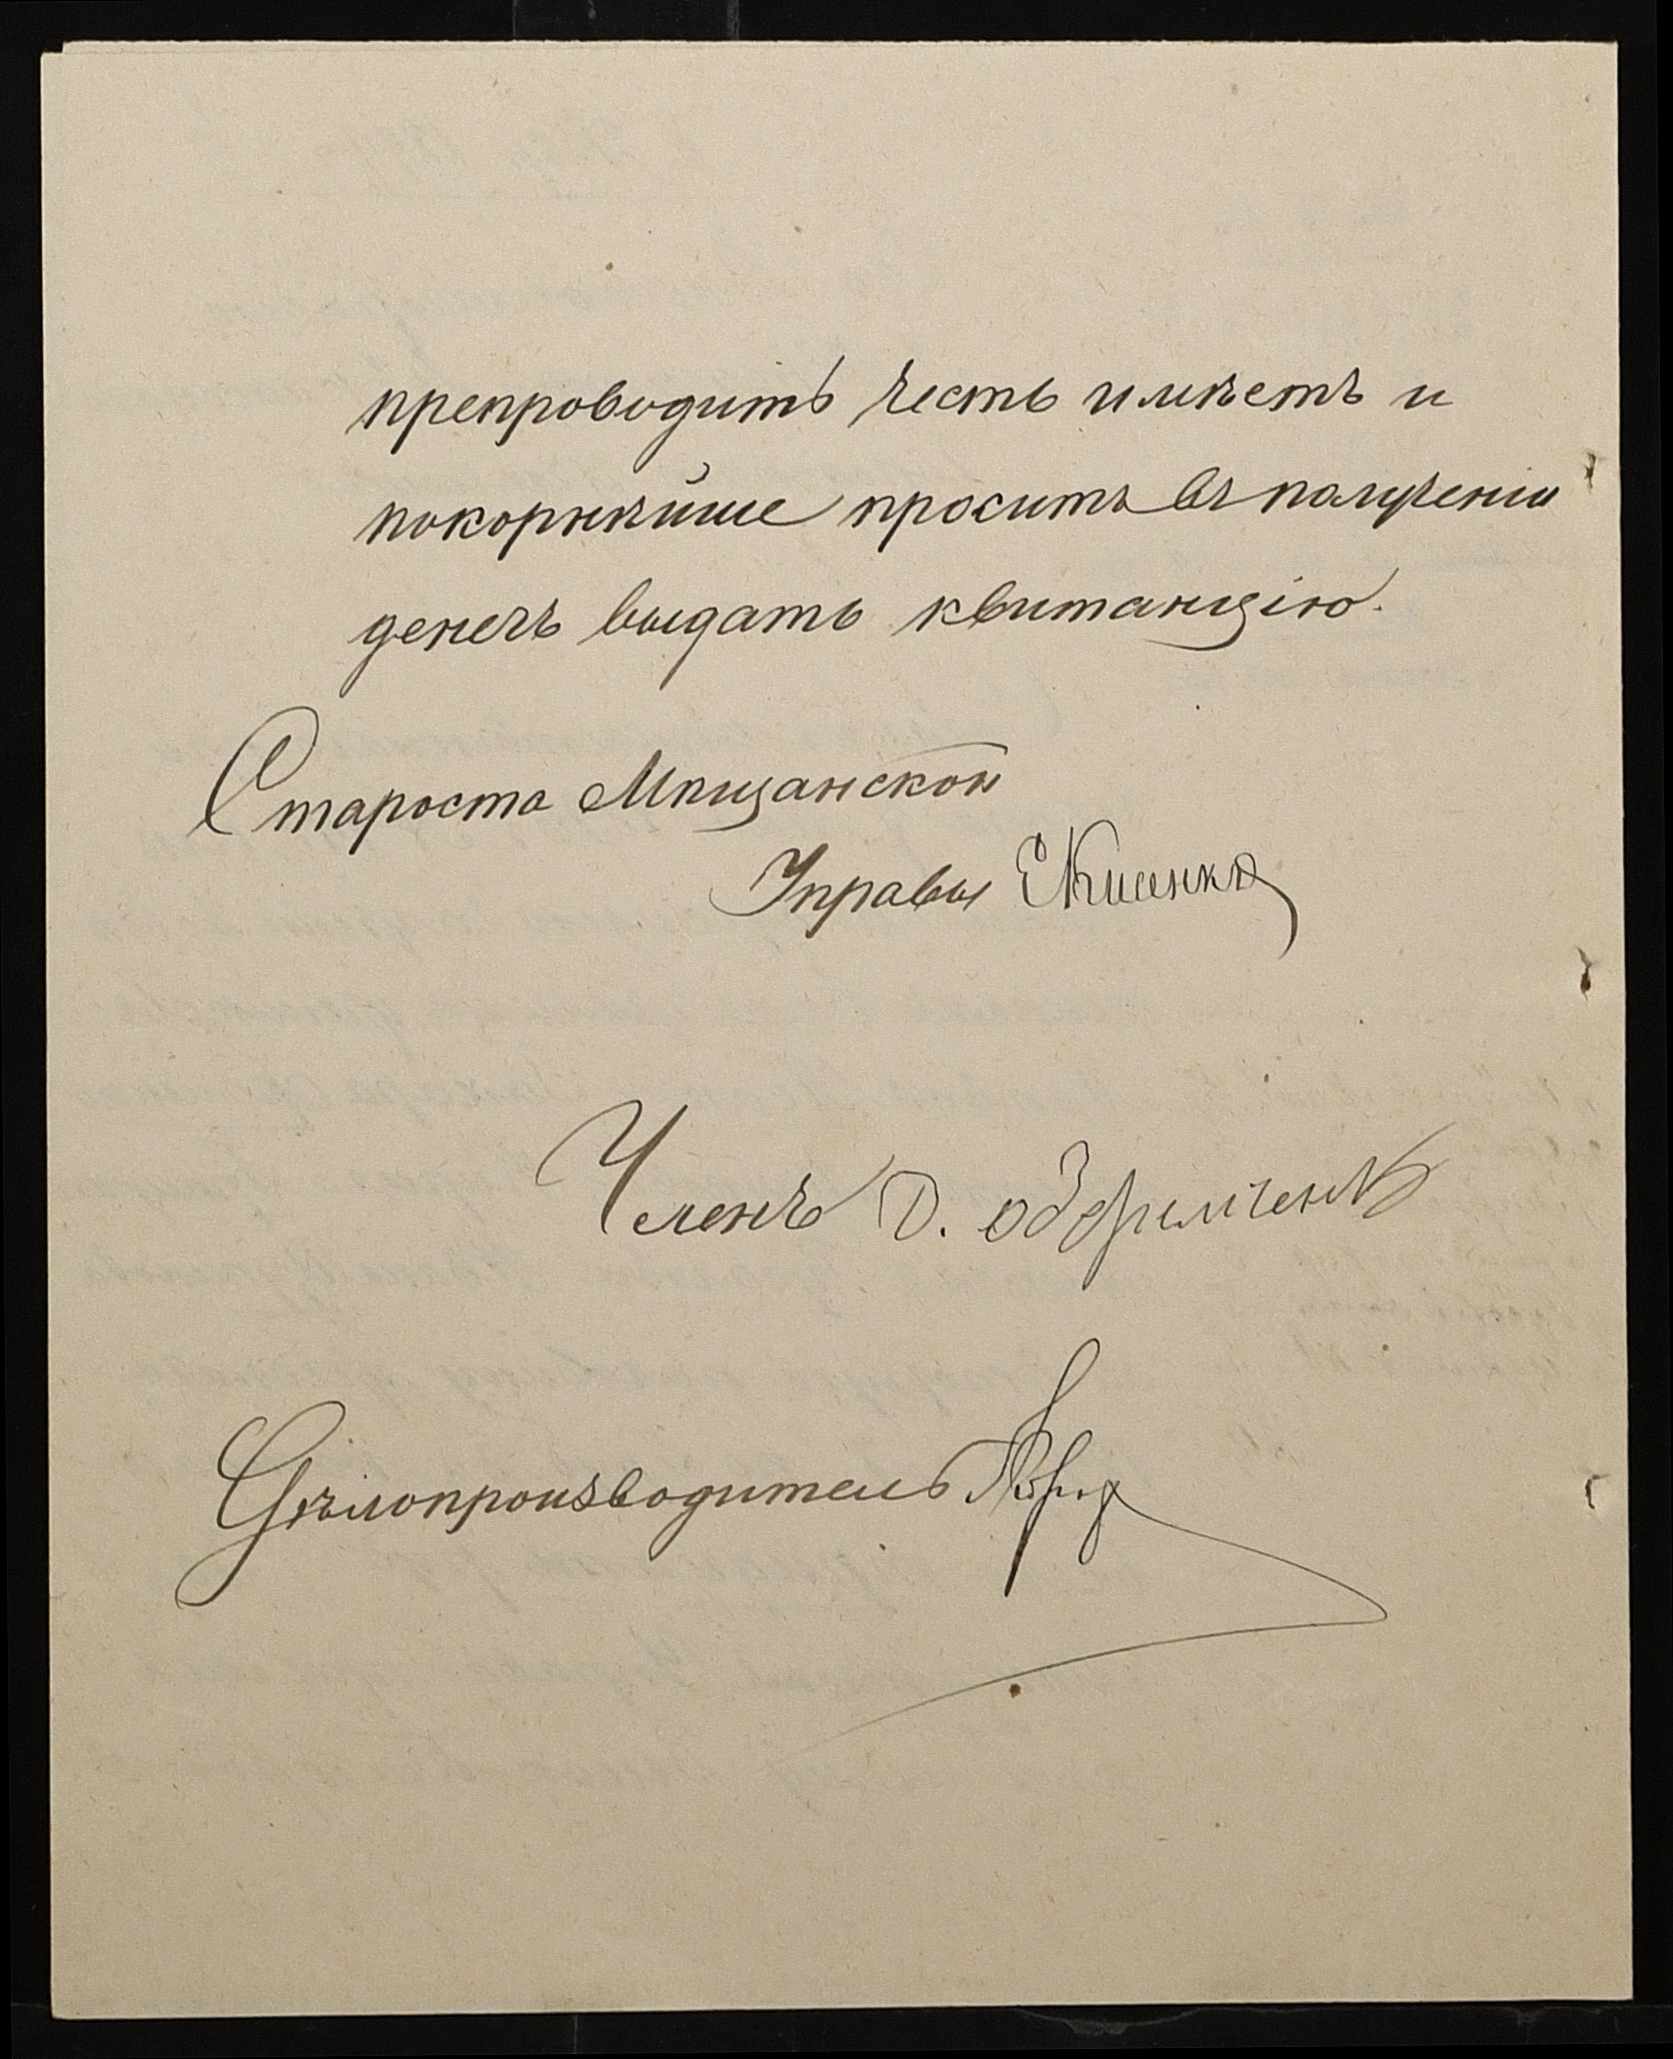 препроводить честь имѣетъ и
покорнѣйше проситъ въ полученіи
денегъ выдать квитанцію.
Староста Мѣщанской
Управы
Членъ Д.
Дѣлопроизводитель